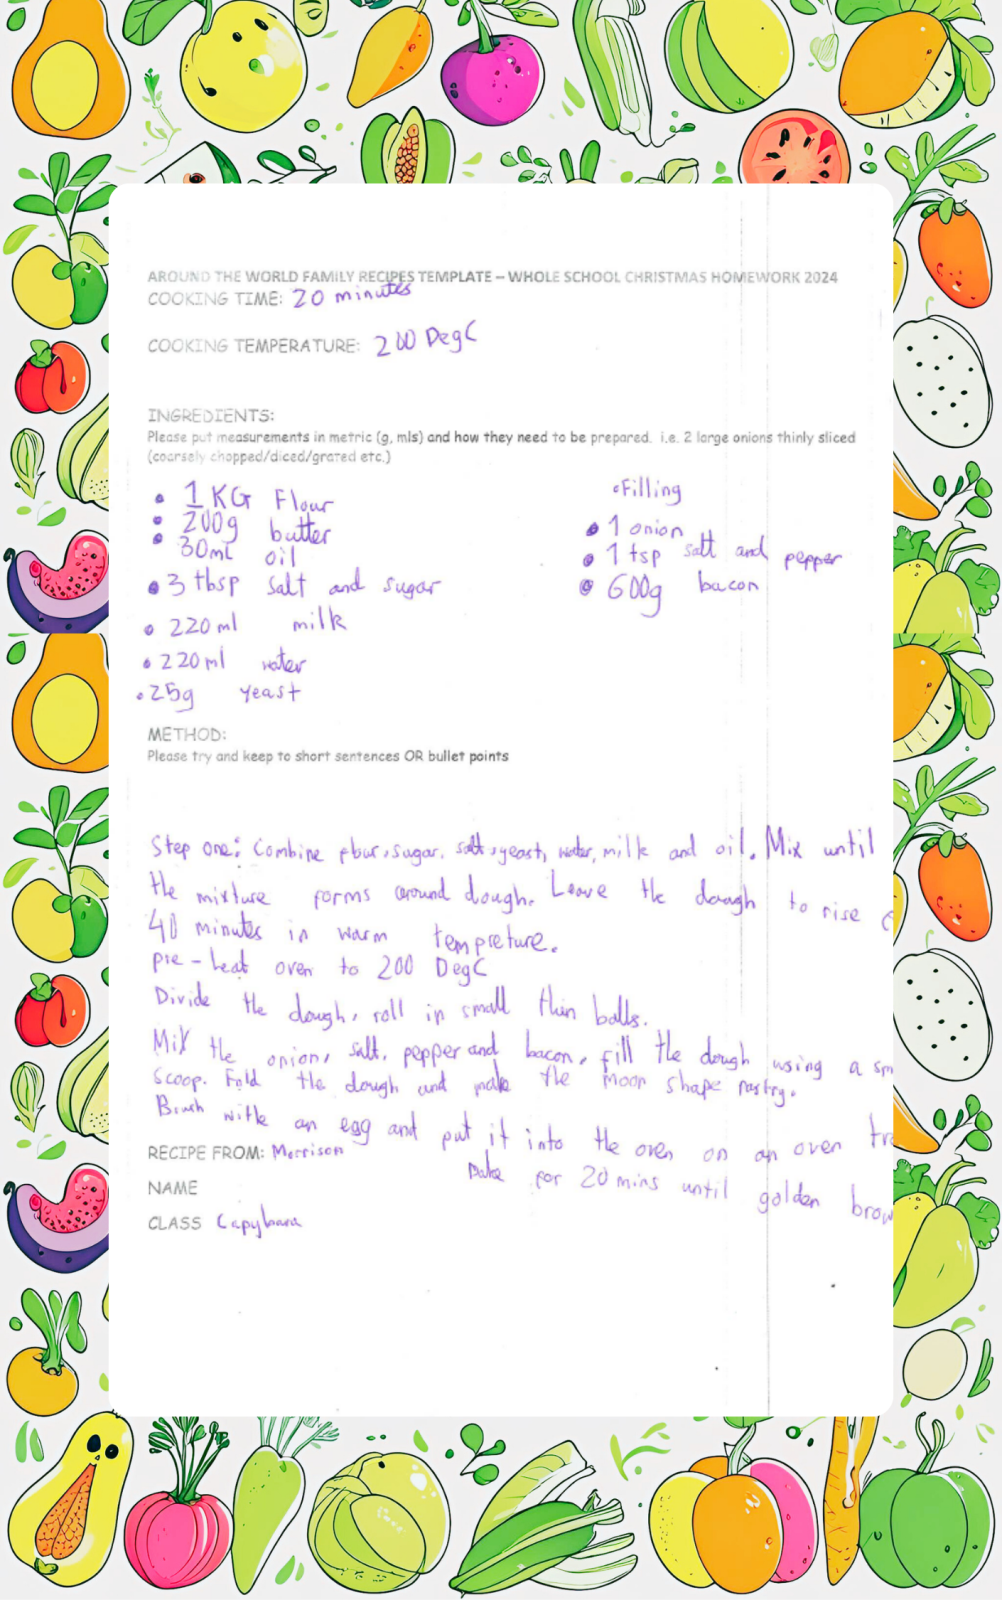 AROUND THE WORLD FAMILY RECIPES TEMPLATE – WHOLE SCHOOL CHRISTMAS HOMEWORK 2024
COOKING TIME: 20 minutes
COOKING TEMPERATURE: 200 DegC
INGREDIENTS:
Please put measurements in metric (g, mls) and how they need to be prepared. i.e. 2 large onions thinly sliced
(coarsely chopped/diced/grated etc.)
• 1 KG Flour
• 200g butter
• 30ml oil
• 3 tbsp salt and sugar
• 220ml milk
• 220ml water
• 25g yeast
• Filling
• 1 onion
• 1 tsp salt and pepper
• 600g bacon
METHOD:
Please try and keep to short sentences OR bullet points
Step one: Combine flour, sugar, salt, yeast, water, milk and oil. Mix until
the mixture forms around dough. Leave the dough to rise
40 minutes in warm tempreture.
pre-heat oven to 200 DegC
Divide the dough, roll in small thin balls.
Mix the onion, salt, pepper and bacon, fill the dough using a
scoop. Fold the dough and make the moon shape pastry.
Brush with an egg and put it into the oven on an oven
Bake for 20 mins until golden
RECIPE FROM: Morrison
NAME
CLASS Capybara